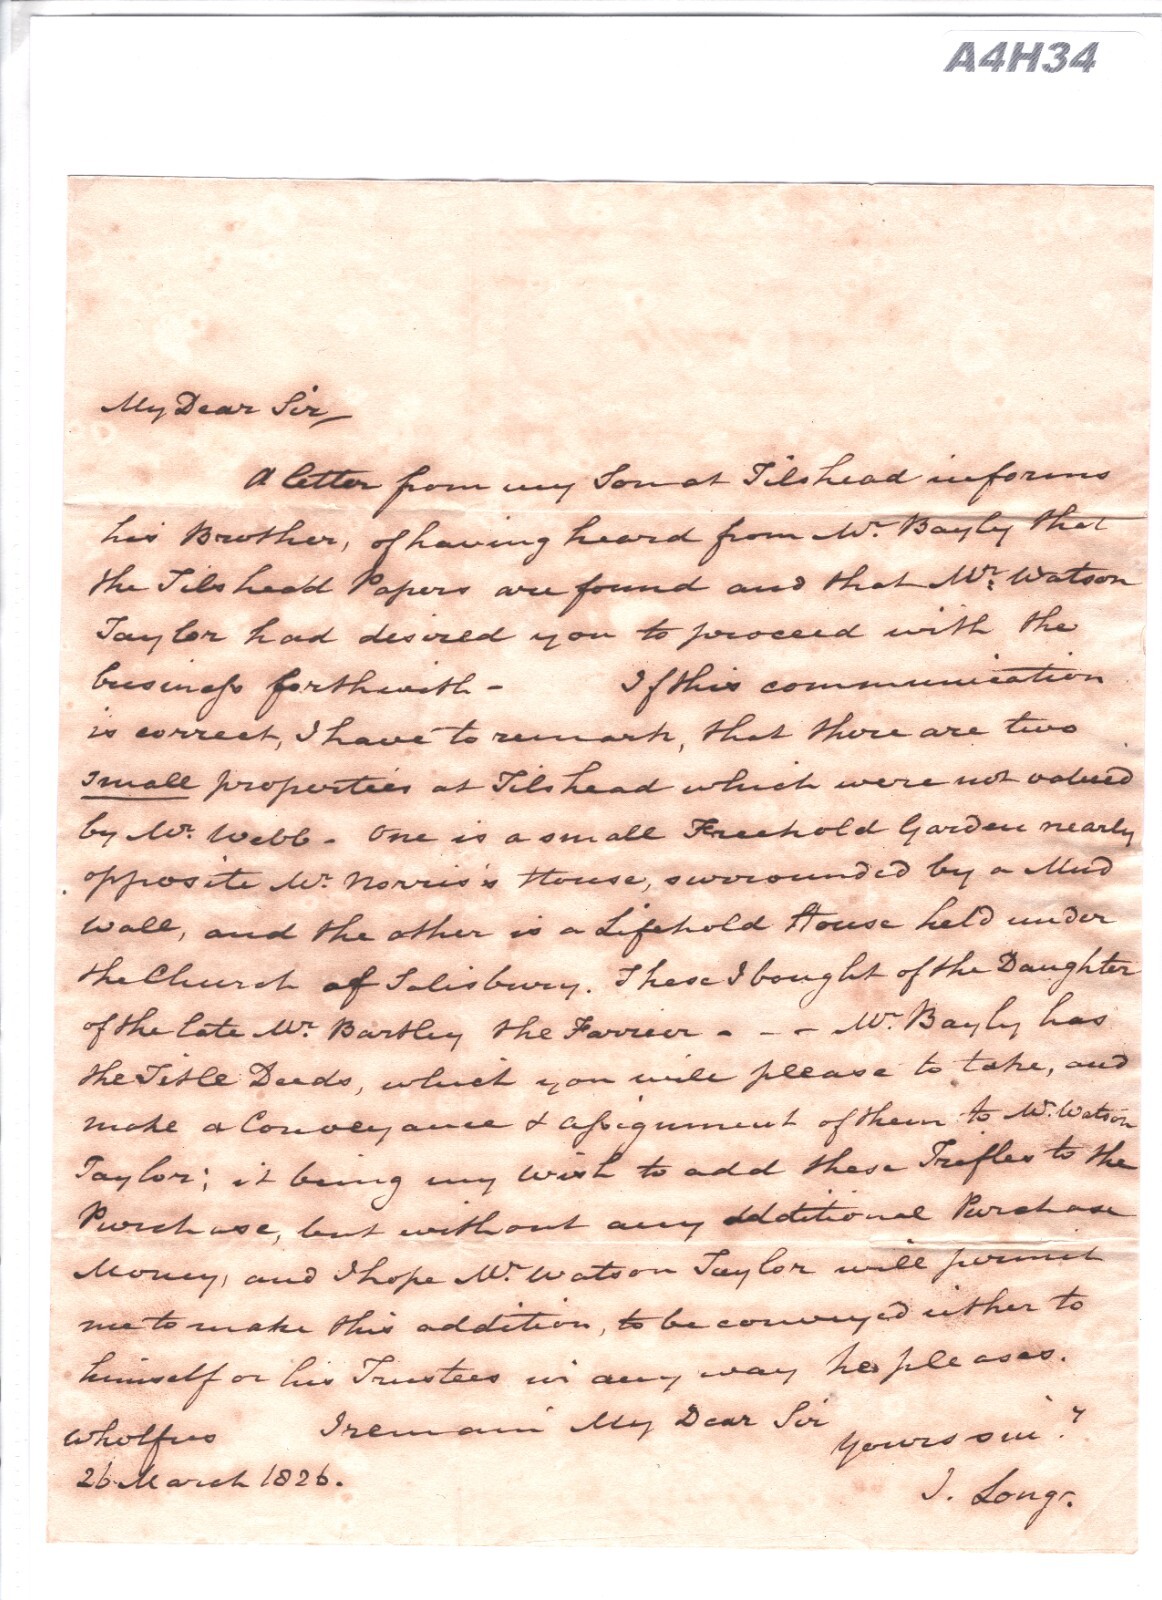 A4H34
My Dear Sir,
A letter from my Son at Tilshead informs
his Brother, of having heard from Mr. Bayly that
the Tilshead Papers are found and that Mr. Watson
Taylor had desired you to proceed with the
business forthwith - If this communication
is correct, I have to remark, that there are two
small properties at Tilshead which were not valued
by Mr. Webb - One is a small Freehold Garden nearly
opposite Mr. Norris's House, surrounded by a Mud
Wall, and the other is a Lifehold House held under
the Church of Salisbury. These I bought of the Daughter
of the late Mr. Bartley the Farrier - - - Mr. Bayly has
the Title Deeds, which you will please to take, and
make a Conveyance & Assignment of them to Mr. Watson
Taylor; it being my wish to add these Trifles to the
Purchase, but without any additional Purchase
Money, and I hope Mr. Watson Taylor will permit
me to make this addition, to be conveyed either to
himself or his Trustees in any way he pleases.
I remain My Dear Sir
Yours sin.y
26 March 1826.
J. Long.